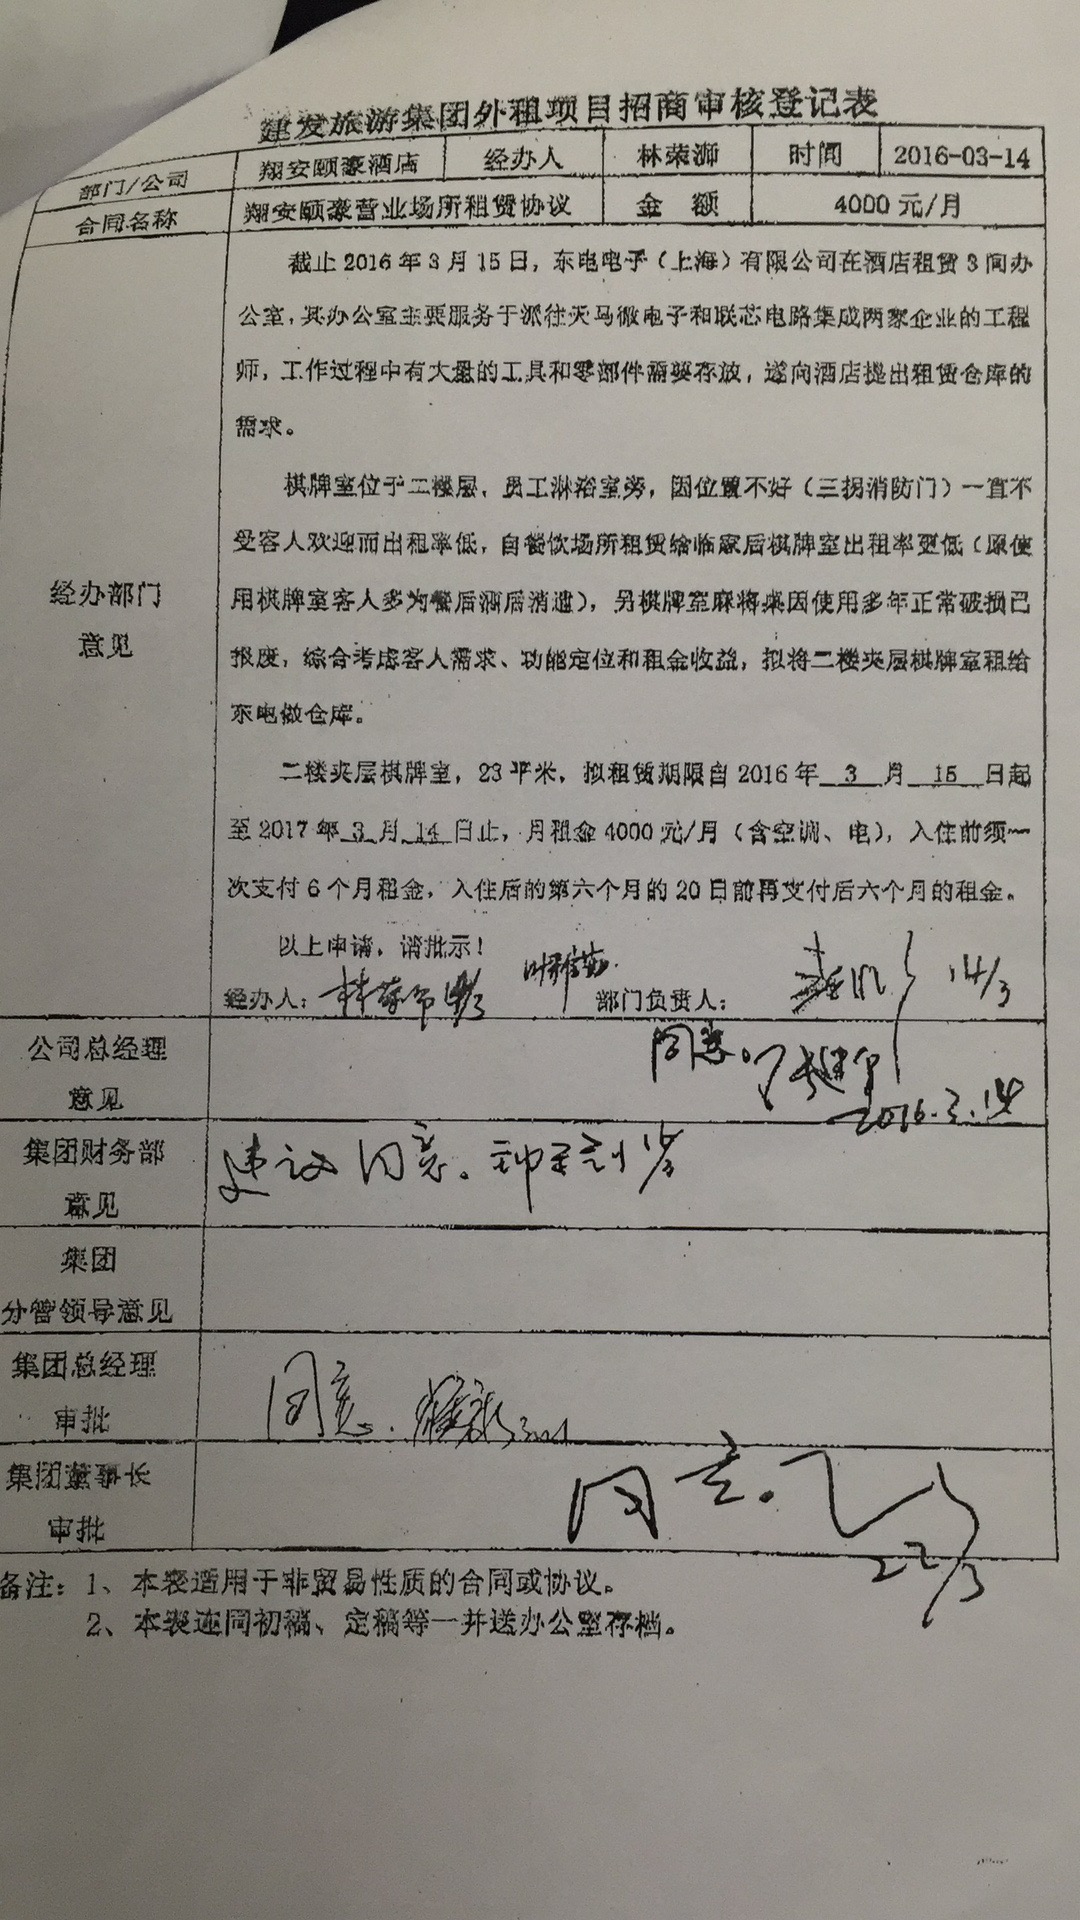 建发旅游集团外租项目招商审核登记表
部门/公司 翔安颐豪酒店 经办人 林荣浉 时间 2016-03-14
合同名称 翔安颐豪营业场所租赁协议 金 额 4000 元/月
经办部门
意见
截止 2016 年 3 月 15 日，东电电子（上海）有限公司在酒店租赁 3 间办
公室，其办公室主要服务于派往天马微电子和联芯电路集成两家企业的工程
师，工作过程中有大量的工具和零部件需要存放，遂向酒店提出租赁仓库的
需求。
棋牌室位于二楼层，员工淋浴室旁，因位置不好（三拐消防门）一直不
受客人欢迎而出租率低，自餐饮场所租赁给临家后棋牌室出租率更低（原使
用棋牌室客人多为餐后酒后消遣），另棋牌室麻将桌因使用多年正常破损已
报废，综合考虑客人需求、功能定位和租金收益，拟将二楼夹层棋牌室租给
东电做仓库。
二楼夹层棋牌室，23 平米，拟租赁期限自 2016 年 3 月 15 日起
至 2017 年 3 月 14 日止，月租金 4000 元/月（含空调、电），入住前须一
次支付 6 个月租金，入住后的第六个月的 20 日前再支付后六个月的租金。
以上申请，请批示！
经办人： 部门负责人： 14/3
公司总经理
意见
同意。
2016.3.14
集团财务部
意见
建议同意。
集团
分管领导意见
集团总经理
审批
同意.
集团董事长
审批
同意.
22/3
备注：1、本表适用于非贸易性质的合同或协议。
2、本表连同初稿、定稿等一并送办公室存档。